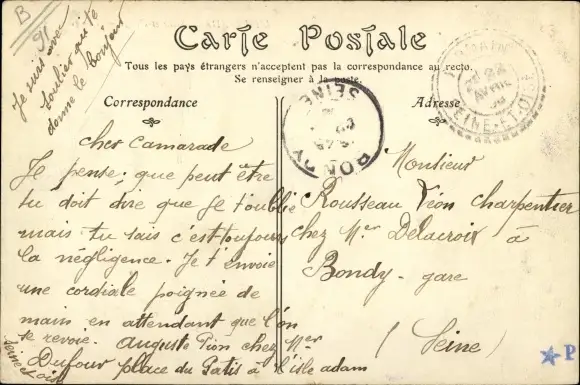 B
91
Je suis avec
soulier qui te
donne le bonjour
Carte Postale
Tous les pays étrangers n'acceptent pas la correspondance au recto.
Se renseigner à la poste.
Correspondance
Adresse
BONDY
SEINE
22
AVRIL
SEINE-ET-OISE
cher Camarade
Je pense que peut être
tu doit dire que je t'oublie
mais tu sais c'est toujours
la négligence. Je t'envoie
une cordiale poignée de
main en attendant que l'on
te revoie. Auguste Pion chez Mer
Dufour place du Patis à l'isle adam
seine et oise
Monsieur
Rousseau Léon charpentier
chez Mer Delacroix à
Bondy. gare
(Seine)
P